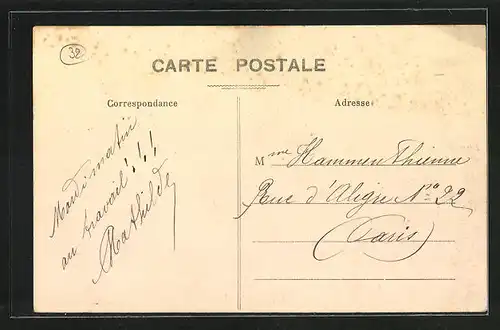 32
CARTE POSTALE
Correspondance
Adresse
Mardi matin
au travail!!!
Mathilde
Mme Hammen Thienne
Rue d'Aligre No 22
(Paris)